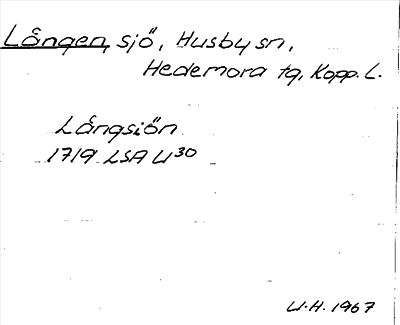 Lången, sjö, Husby sn,
Hedemora tg, Kopp. L.
Långsiön
1719 LSA U30
U.H. 1967